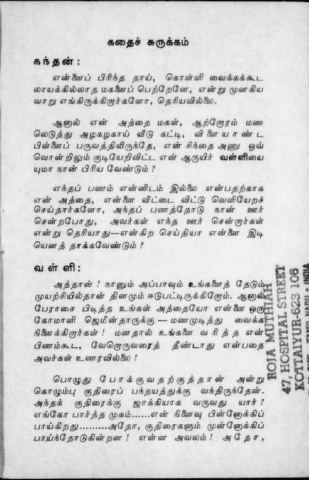 கதைச் சுருக்கம்
கந்தன் :
என்னைப் பிரிந்த தாய், கொள்ளி வைக்கக்கூட
லாயக்கில்லாத மகனைப் பெற்றேனே, என்று முனகிய
வாறு எங்கிருக்கிறார்களோ, தெரியவில்லை.
ஆனால் என் அத்தை மகள், ஆற்றோரம் மண
லெடுத்து அழகழகாய் வீடு கட்டி, விளையாண்ட
பிள்ளைப் பருவத்திலிருந்தே, என் சிந்தை அணு ஒவ்
வொன்றிலும் குடியேறிவிட்ட என் ஆருயிர் வள்ளியை
யுமா நான் பிரிய வேண்டும் ?
எந்தப் பணம் என்னிடம் இல்லை என்பதற்காக
என் அத்தை, என்னை வீட்டை விட்டு வெளியேறச்
செய்தார்களோ, அந்தப் பணத்தோடு நான் ஊர்
சென்றபோது, அவர்கள் எந்த ஊர் சென்றார்கள்
என்று தெரியாது—என்கிற செய்தியா என்னை இடி
யெனத் தாக்கவேண்டும் !
வள்ளி :
அத்தான் ! நானும் அப்பாவும் உங்களைத் தேடும்
முயற்சியில்தான் தினமும் ஈடுபட்டிருக்கிறோம். ஆனால்
பேராசை பிடித்த உங்கள் அத்தையோ என்னை ஒரு
கோமாளி ஜெமின்தாருக்கு—மணமுடித்து வைக்க
நினைக்கிறார்கள் ! மனதால் உங்களை வரித்த என்
பிணம்கூட, வேறொருவரைத் தீண்டாது என்பதை
அவர்கள் உணரவில்லை !
பொழுது போக்குவதற்குத்தான் அன்று
கொழும்பு குதிரைப் பந்தயத்துக்கு வந்திருந்தேன்.
அந்தக் குதிரைக்கு ஜாக்கியாக வருவது யார் !
எங்கோ பார்த்த முகம்......என் நினைவு பின்னோக்கிப்
பாய்கிறது.........அதோ, குதிரைகளும் முன்னோக்கிப்
பாய்ந்தோடுகின்றன ! என்ன அவலம் ! அதோ,
ROJA MUTHIAH
47, HOSPITAL STREET
KOTTAIYUR-623 106